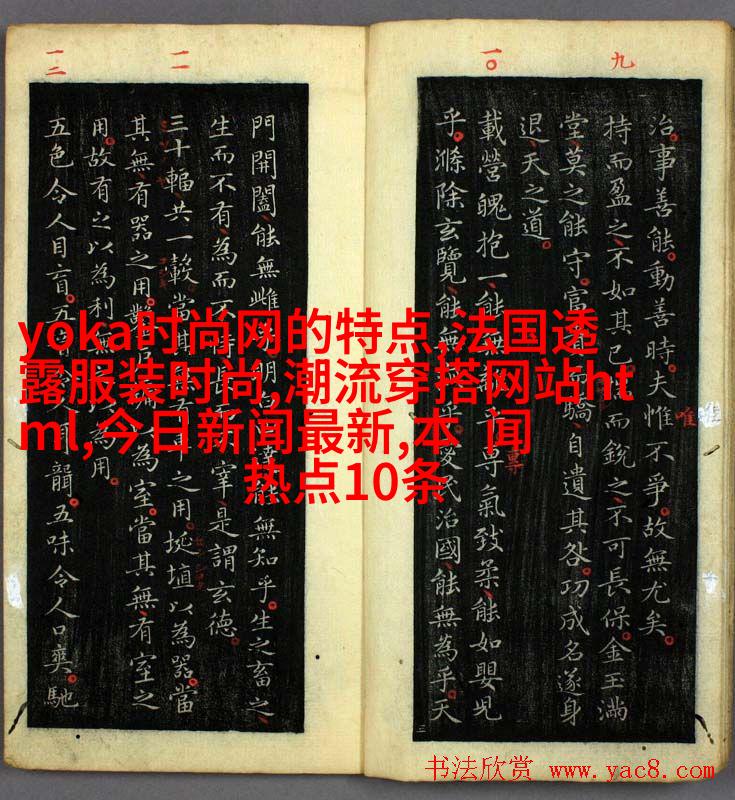 yoka时尚网的特点,法国透
露服装时尚,潮流穿搭网站ht
ml,今日新闻最新,本 闻
热点10条
九
治事善能動善時夫惟不爭故無尤矣
唯
持而盈之不如其已而銳之不可長保金玉滿
堂莫之能守富而驕自遺其咎功成名遂身
退天之道
一〇
載營魄抱一能無乎專氣致柔能如嬰兒
專
乎滌除玄覽能無乎愛民治國能無為乎天
一一
門開闔能無雌明能無知乎生之畜之
生而不有為而不恃長不宰是謂玄德
三十輻共一轂當其無有之用埏埴以為器當
其無有器之用鑿為室當其無有室之
一二
用故有之以為利無為用
五色令人目盲五音人耳聾五味令人口爽馳
书法欣赏 www.yac8.com